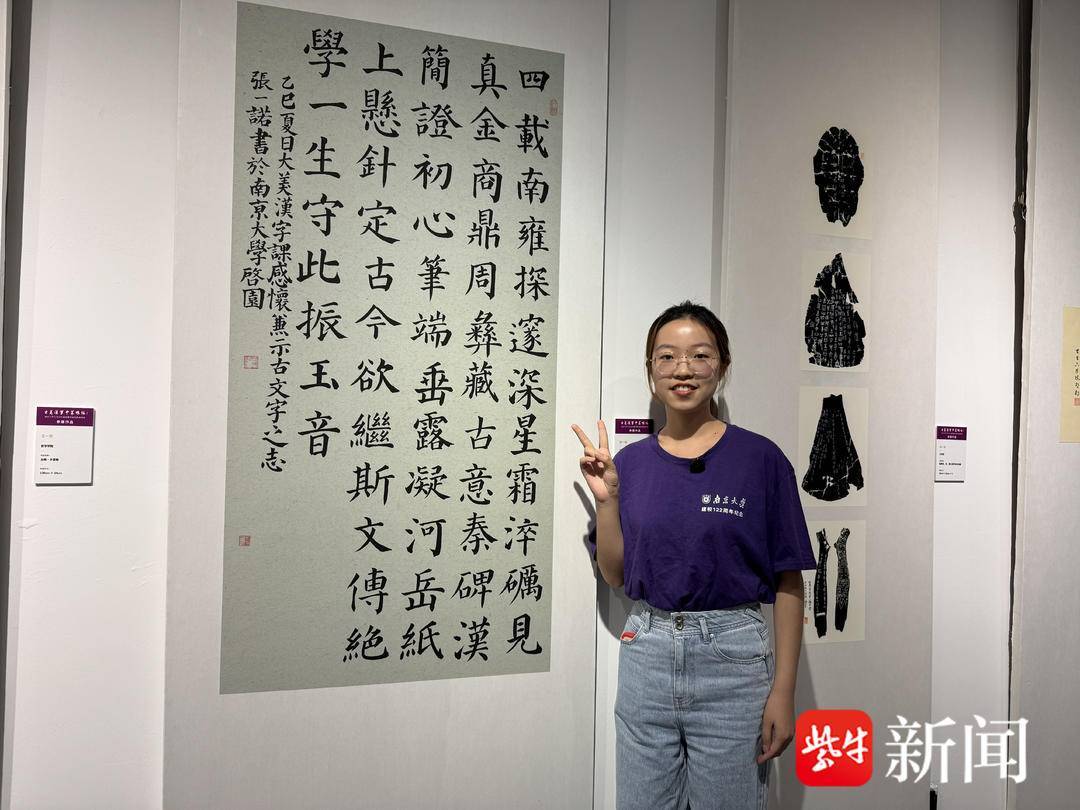 四載南雍探邃深星霜淬礪見
真金商鼎周彝藏古意秦碑漢
簡證初心筆端垂露凝河岳紙
上懸針定古今欲繼斯文傳絕
學一生守此振玉音
乙巳夏日大美漢字課感懷兼示古文字之志
張一諾書於南京大學啓園
参展作品
南京大學
建校122周年纪念
紫牛新闻